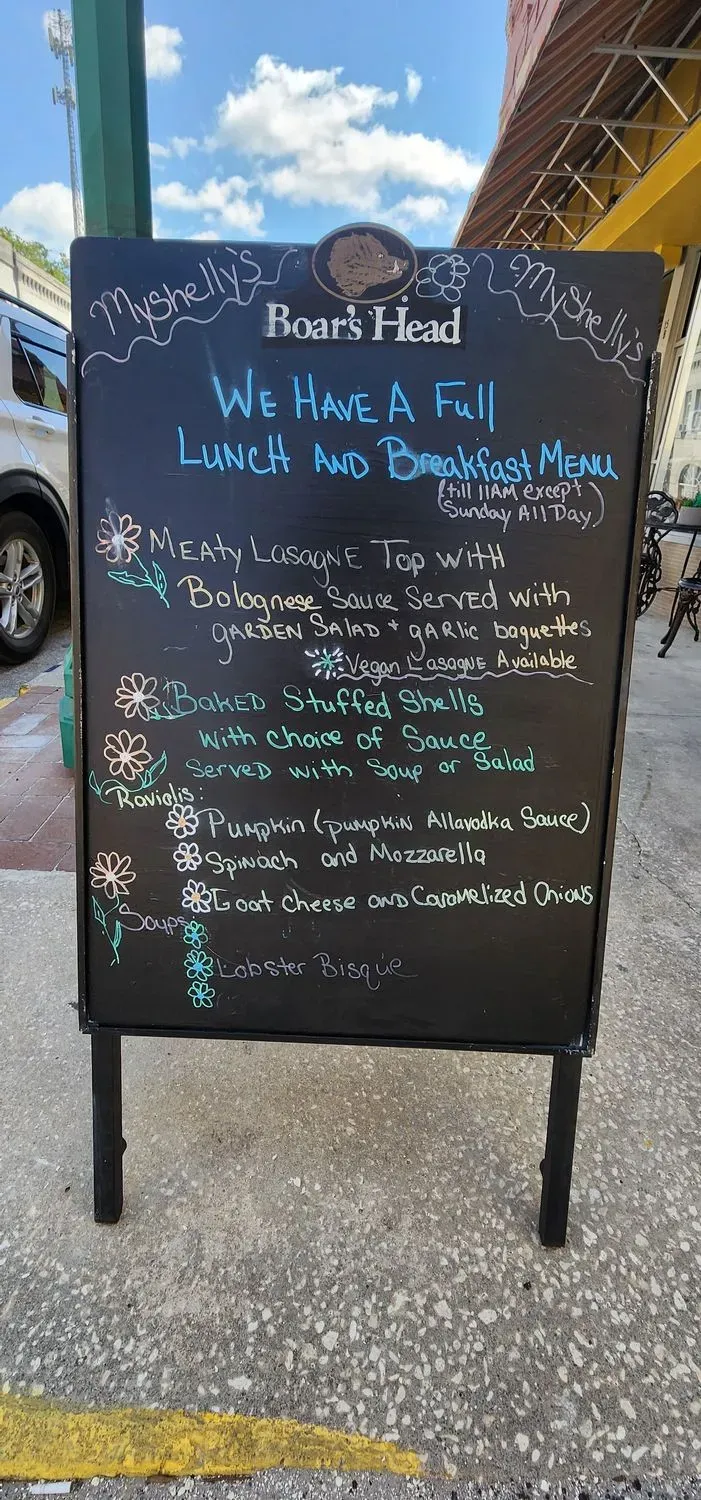 Myshelly's
MyShelly's
Boar's Head
We Have A Full
Lunch and Breakfast Menu
(till 11AM except
Sunday All Day)
Meaty Lasagne Top with
Bolognese Sauce Served with
Garden Salad + garlic baguettes
Vegan Lasagne Available
Baked Stuffed Shells
with choice of Sauce
Served with Soup or Salad
Raviolis:
Pumpkin (pumpkin Allavodka Sauce)
Spinach and Mozzarella
Goat cheese and Caramelized Onions
Soups:
Lobster Bisque